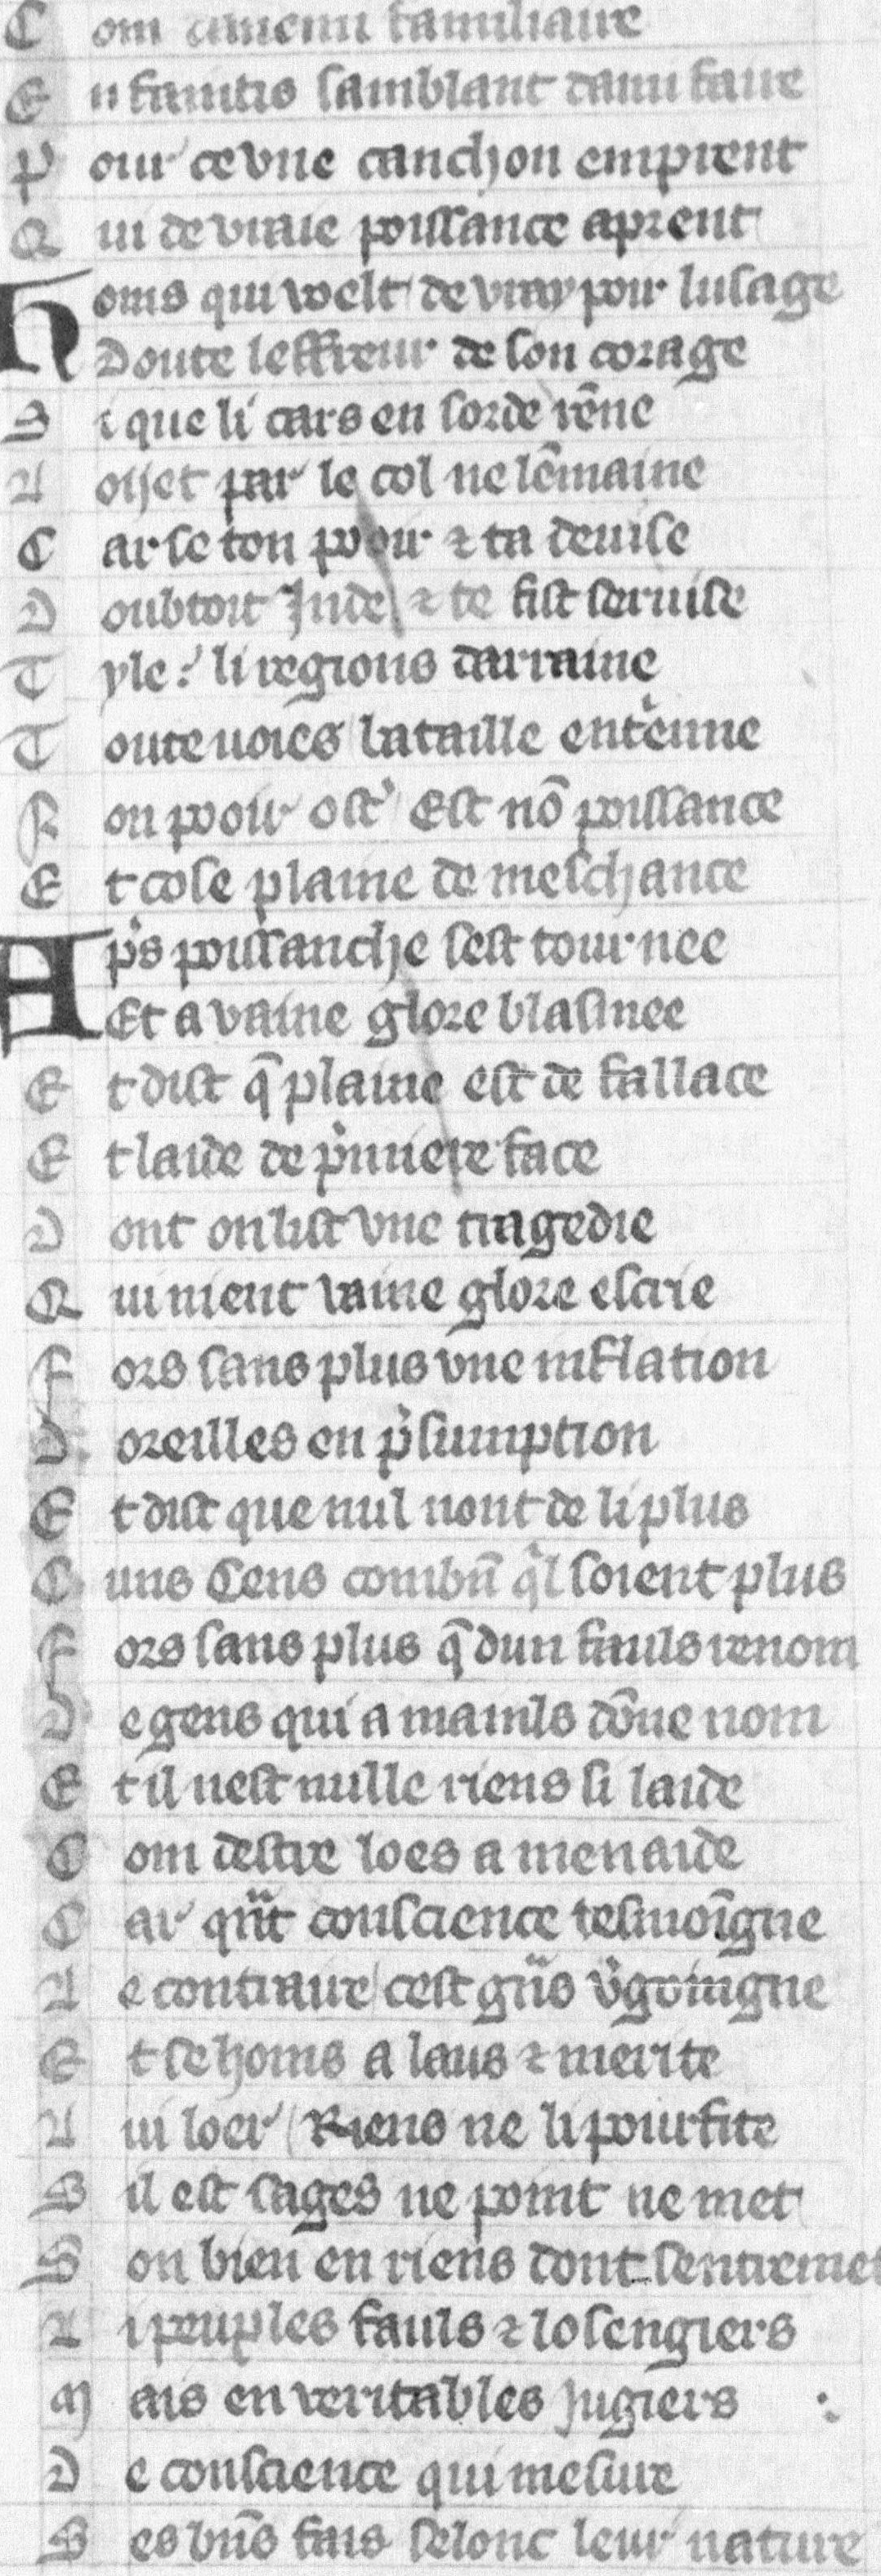 C om anemi familiaire
E n faintis samblant dami faire
P our ce vne canchon emprent
Q ui de vraie poissance aprent
H oms qui welt de vray pooir lusage
Doute leffreur de son corage
S i que li cars en sorde rēne
L oiiet par le col ne lēmaine
C ar se ton pooir ⁊ ta deuise
D oubtoit Inde ⁊ te fist seruise
T yle li regions darraine
T oute uoies bataille entenne
N on pooir ost Est nō poissance
E t cose plaine de meschance
A ps poissanche sest tournee
Et a vaine glore blasmee
E t dist q̄ plaine est de fallace
E t laide de pmiere face
D ont on list vne tragedie
Q ui nient vaine glore escrie
F ors sans plus vne inflation
D oreilles en psumption
E t dist que nul nont de li plus
C uns Cens combn̄ ql soient plus
F ors sans plus q̄ dun fauls renom
D e gens qui a mainls dōne nom
E t il nest nulle riens si laide
C om destre loes a menaide
C ar qnt conscience tesmoīgne
L e contraire cest gns vgoingne
E t se homs a laus ⁊ merite
L ui loer Riens ne li pourfite
S il est sages ne point ne met
S on bien en riens dont sentremet
L i peuples fauls ⁊ losengiers
M ais en veritables jugiers
D e conscience qui mesure
S es bn̄s fais selonc leur nature